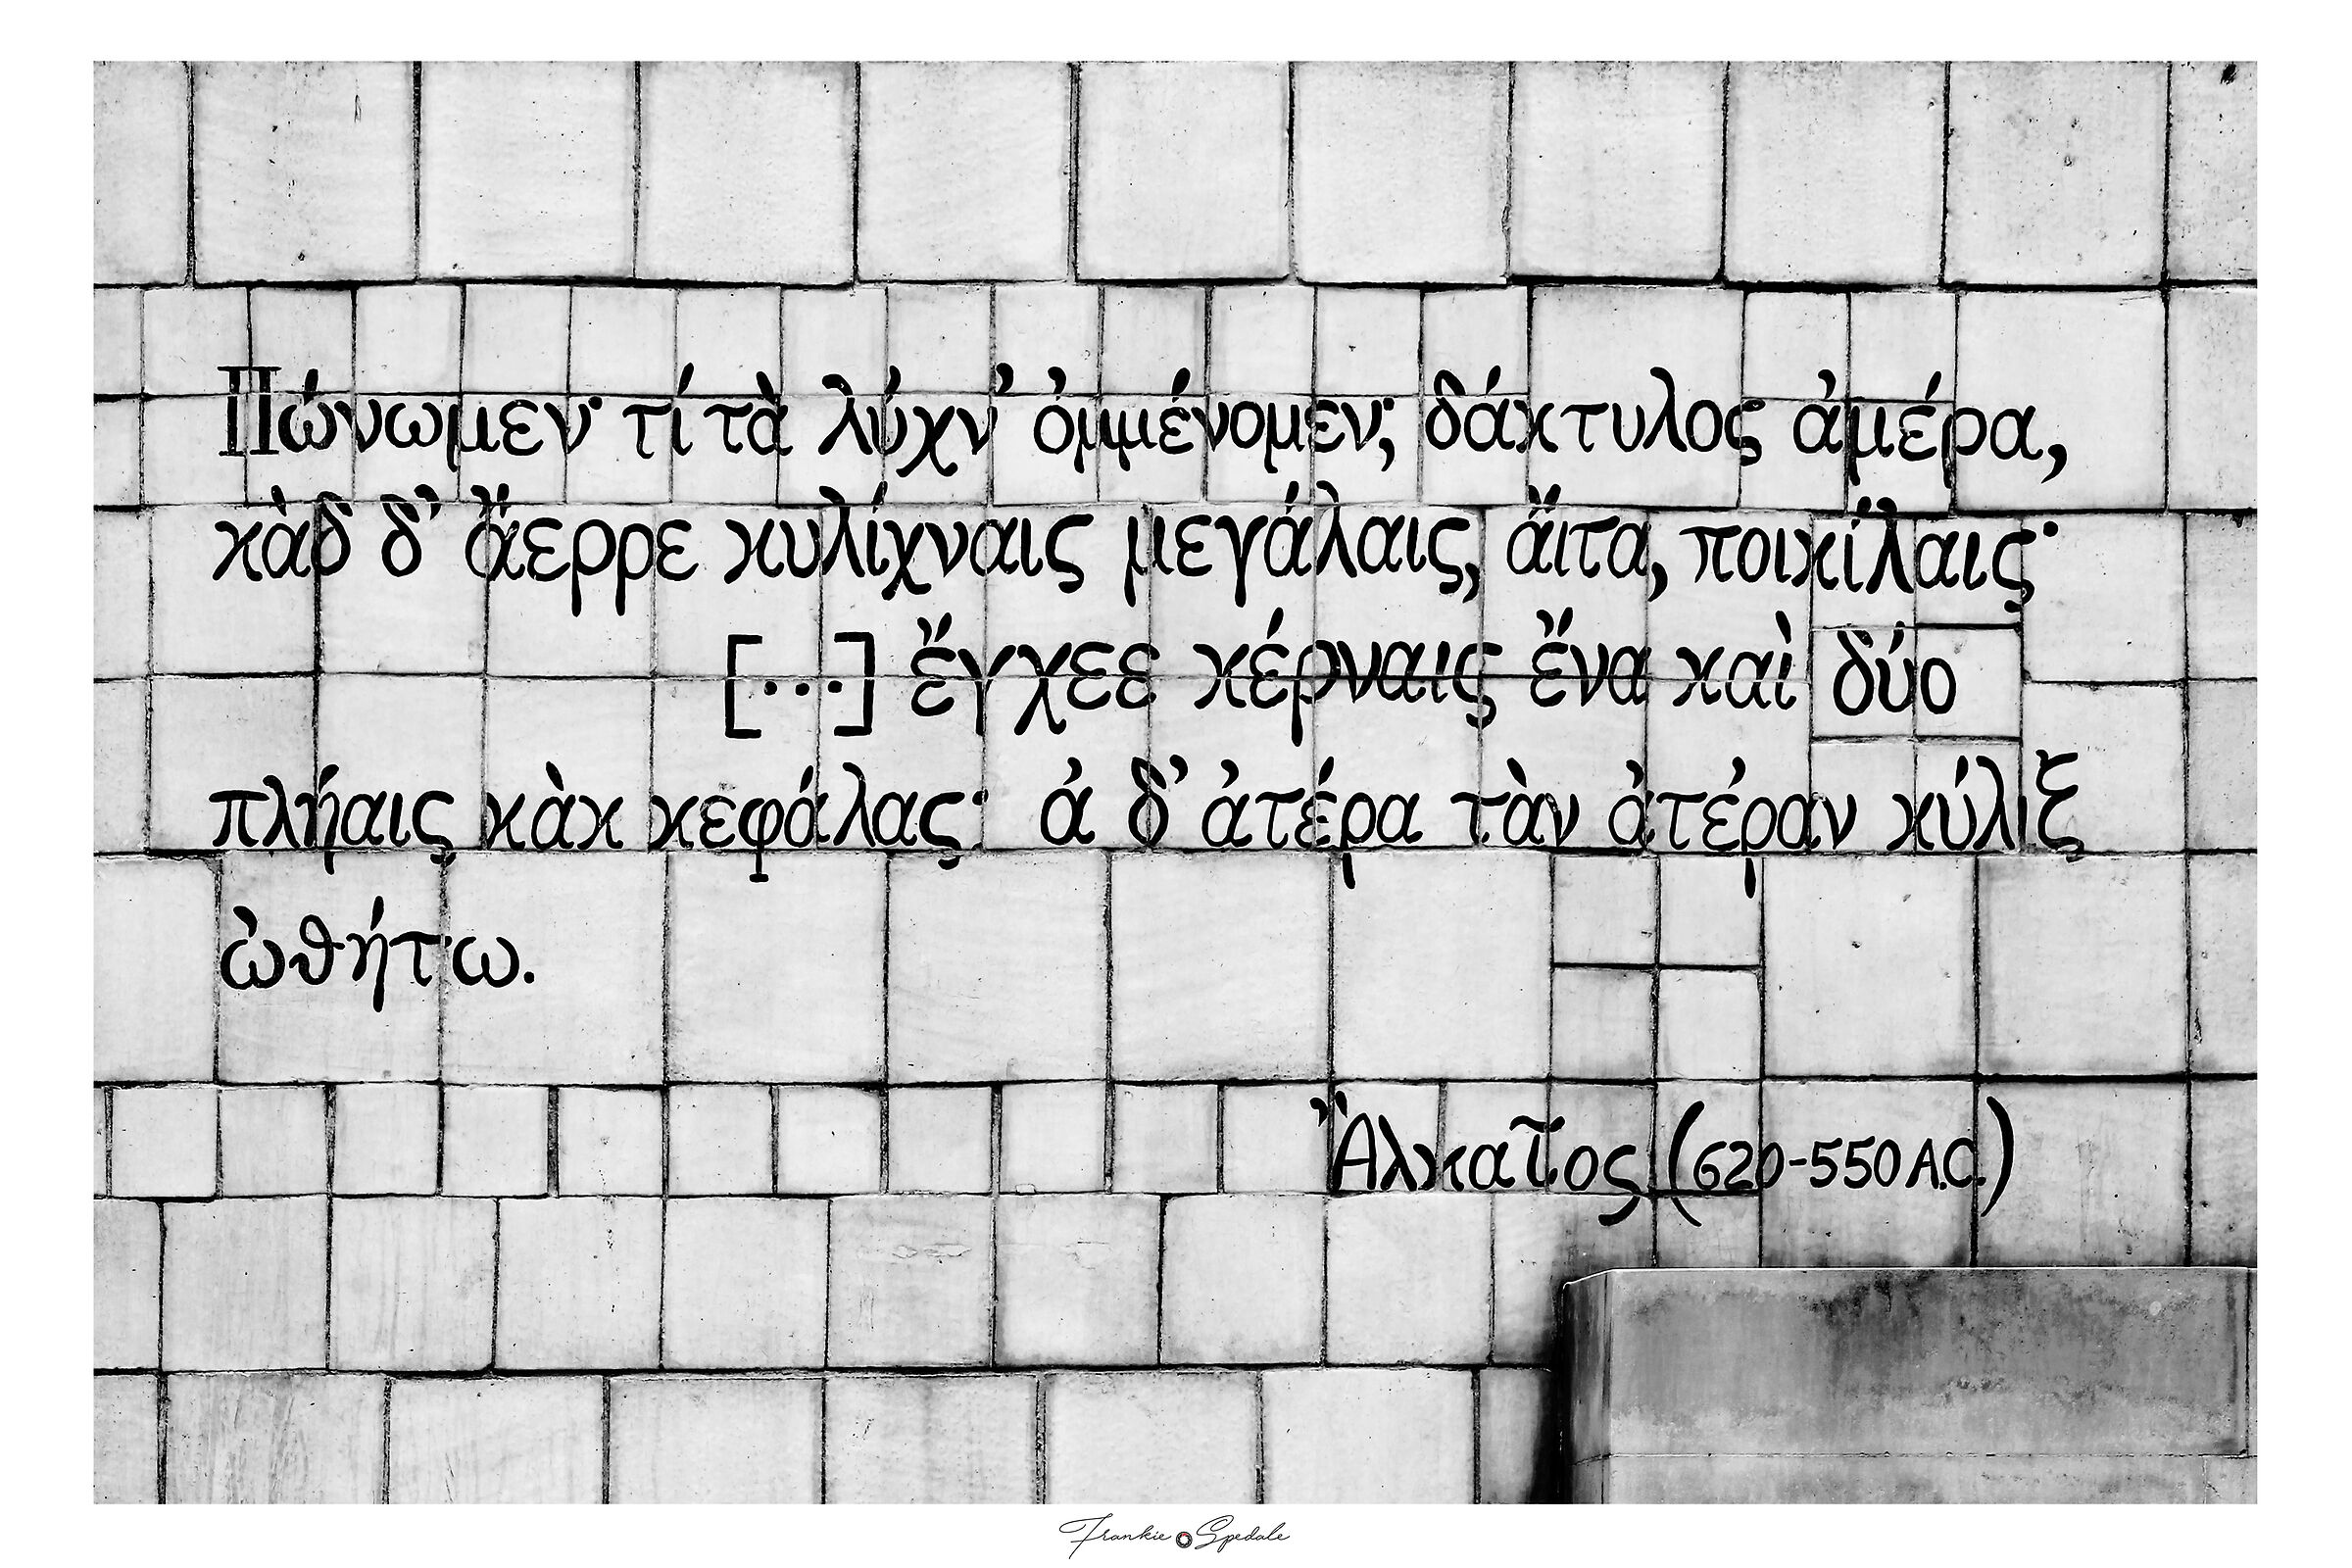 Πώνωμεν· τί τὰ λύχν' ὀμμένομεν; δάκτυλος ἀμέρα,
κὰδ δ' ἄερρε κυλίχναις μεγάλαις, ἄιτα, ποικίλαις·
[...] ἔγχεε κέρναις ἔνα καὶ δύο
πλήαις κὰκ κεφάλας· ἀ δ' ἀτέρα τὰν ἀτέραν κύλιξ
ὠθήτω.
Ἄλκαῖος (620-550 A.C.)
Frankie Spedale